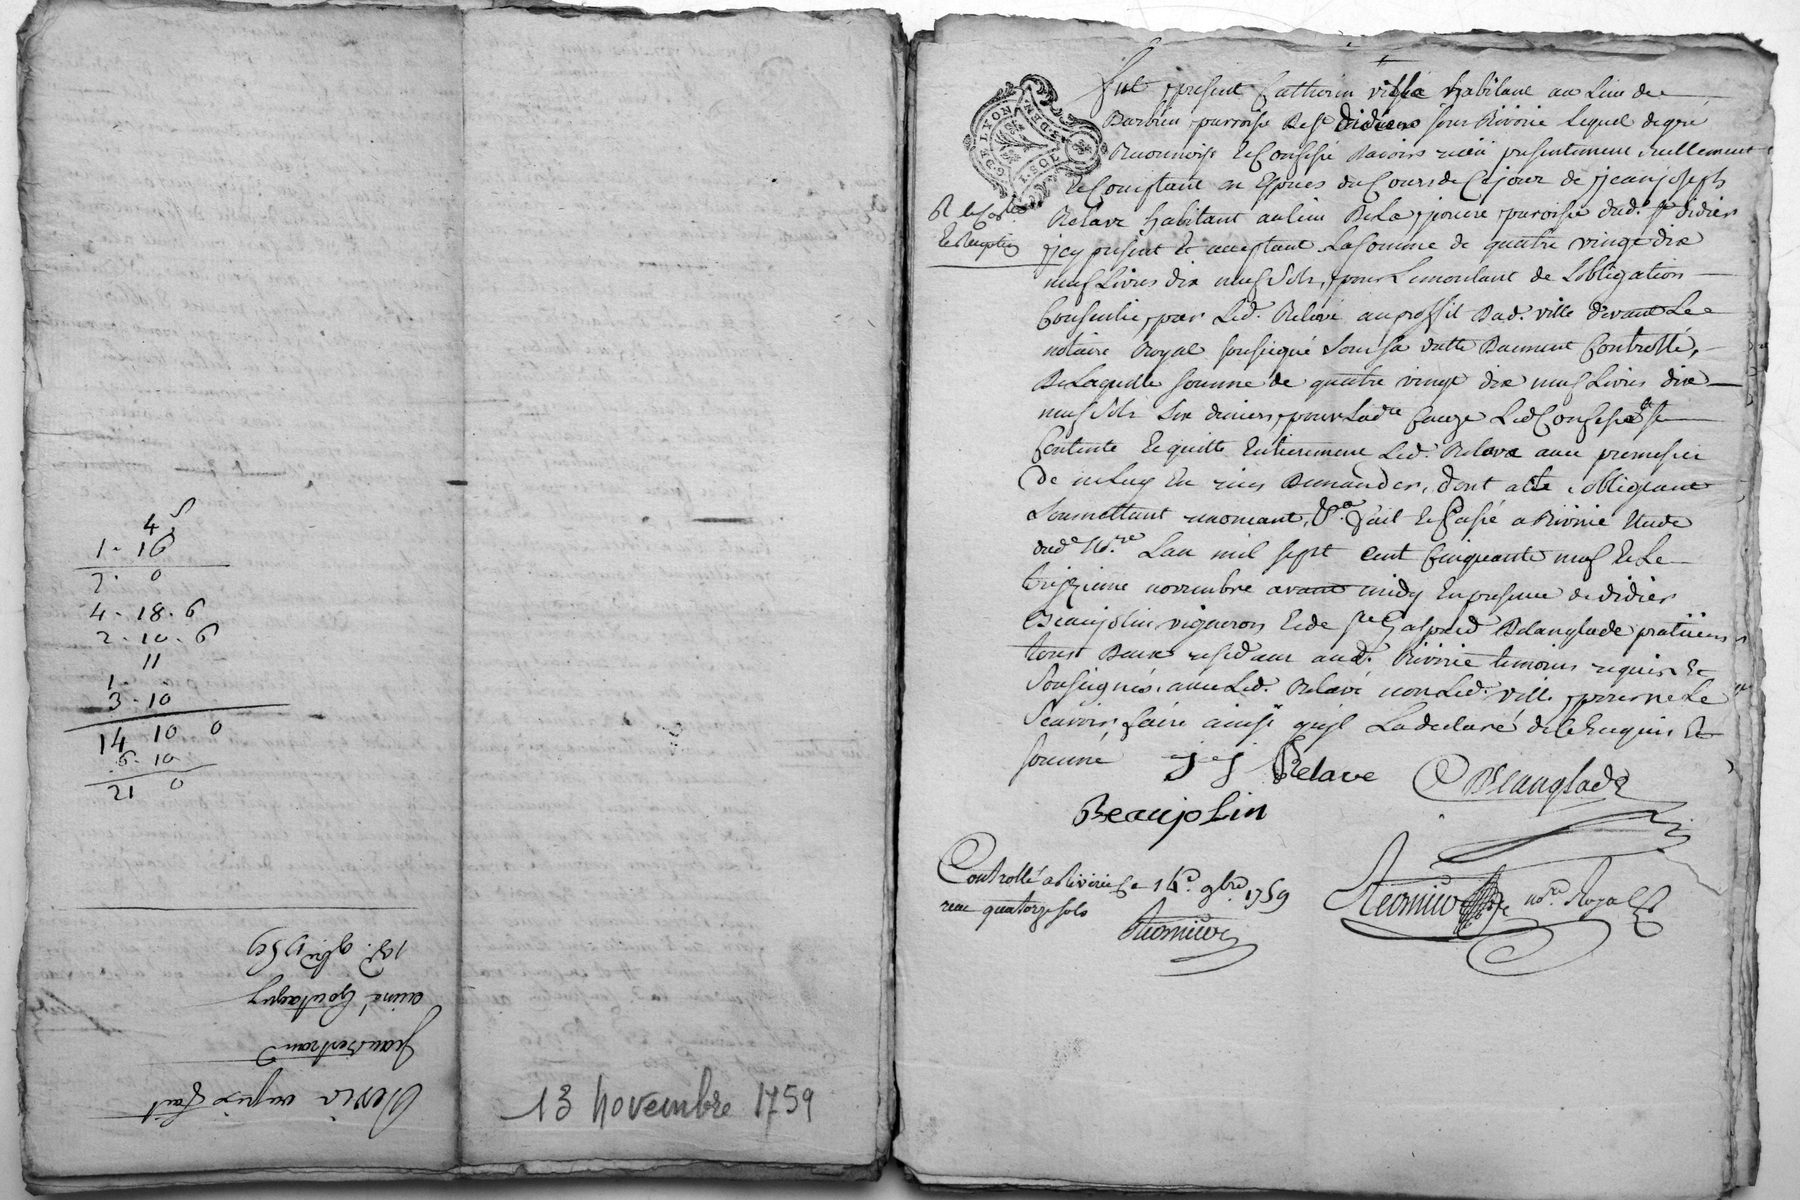 4 5
1 - 16
2 - 0
4 - 18 - 6
2 - 10 - 6
11
1 -
3 - 10
14 10 0
6 - 10
21 0
aimé Goutagny
Jean Bertrand
13 novembre 1759
G. DE LYON
2 S. DEN.
fut présent Catherin ville habitant au lieu de
Barbieu parroisse de St didier sous Riverie Lequel de gré
Reconnoist et Confesse avoir receu presentement reellement
et Comptant en Espces du Cours de Ce jour de jean joseph
Relave habitant au lieu De La parroisse dud. St didier
jcy present et acceptant La Somme de quatre vingt dix
neuf Livres dix neuf Sols, pour Le montant de Lobligation
Consentie par Led. Relave au proffit Dud. ville devant Le
notaire Royal soussigné sous sa datte Duement Controllé,
De Laquelle Somme de quatre vingt dix neuf Livres dix
neuf Sols six deniers pour Ladte Cause Led Confessé et se
Contente et quitte Entierement Led. Relave avec promesse
De ne Luy En rien Demander, dont acte, obligeant
Soumettant renonceant, &a fait et passé a Riverie Etude
dud Nore Lan mil sept cent Cinquante neuf et Le
treizieme novembre avant midy En presence de didier
Beaujolin vigneron et de sr Gaspard Delanglade praticiens
tous Deux residant aud. Riverie temoins requis et
Soussignés avec Led. Relave non Led. ville pour ne Le
Scavoir faire ainsi quil La declaré de ce Enquis et
Sommé
j j Relave
Delanglade
Beaujolin
Controllé a Riverie Le 14e. 9bre. 1759
receu quatorze sols
nore. Royal